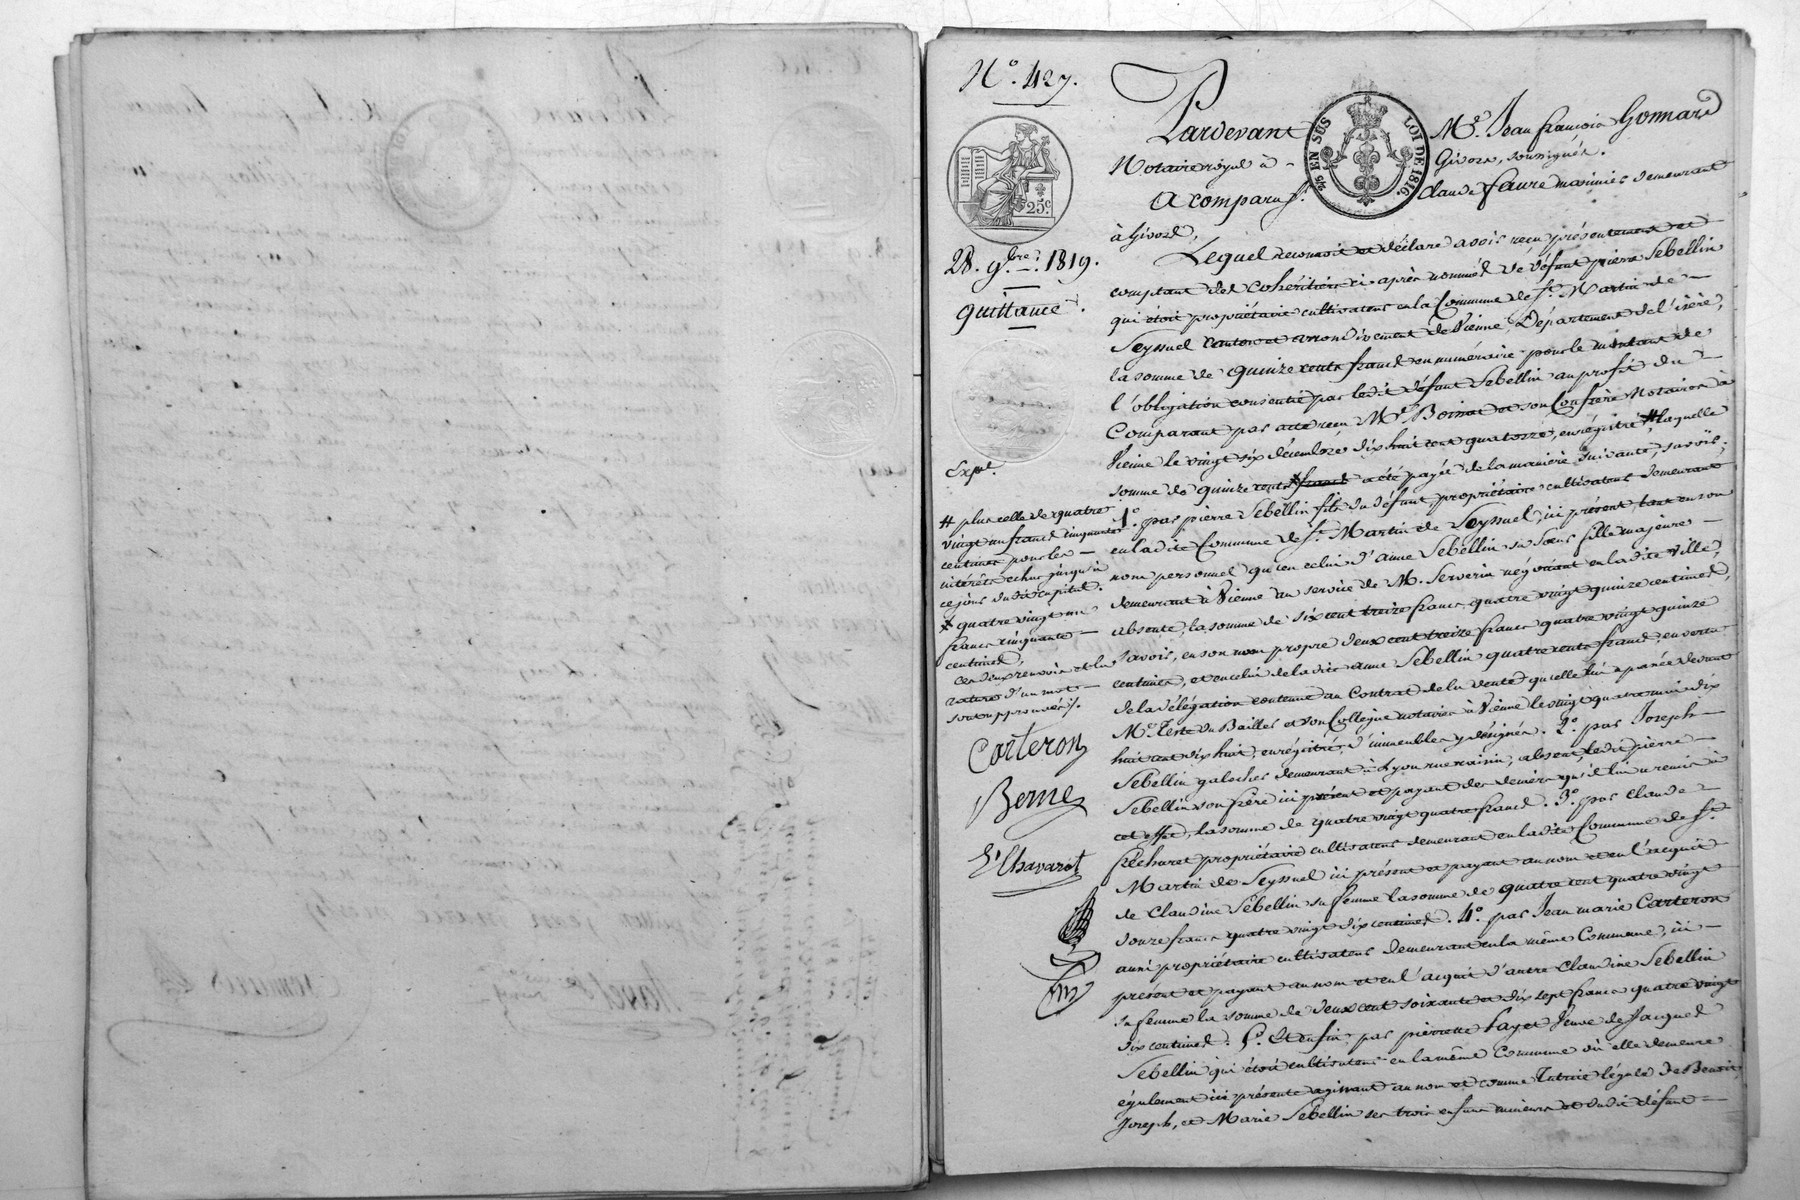 N.° 427.
25.c
28. 9.bre 1819.
quittance.
Exp.é
# plus celle de quatre
vingt un francs cinquante
centimes pour les
intérêts echus jusqu'à
ce jour dudit capital.
* quatre vingt un
francs cinquante
centimes,
ces deux renvois et la
rature d'un mot
sont approuvés.
Carteron
Berne
Chavarot
Pardevant M.e Jean françois Gonnard
EN SUS LOI DE 1816.
Notaire royal à Givors, soussigné.
A comparu S.r Claude faure marinier demeurant
à Givors,
Lequel reconnait et déclare avoir reçu présentement et
comptant des Cohéritiers ci après nommés de défunt pierre Sebellin
qui étoit propriétaire cultivateur en la Commune de S.t Martin de
Seyssuel canton et arrondissement de Vienne, Département de l'isère,
la somme de quinze cents francs en numéraire pour le montant de
l'obligation consentie par ledit défunt Sebellin au profit du
Comparant par acte reçu M.e Boinat et son Confrère Notaires à
Vienne le vingt six décembre dix huit cent quatorze, enregistré # laquelle
somme de quinze cents * francs a été payée de la manière suivante, savoir:
1.° par pierre Sebellin fils du défunt, propriétaire cultivateur demeurant
en ladite Commune de S.t Martin de Seyssuel, ici présent, tant en son
nom personnel qu'en celui d'anne Sebellin sa sœur fille majeure
demeurant à Vienne au service de M. Serverin négociant en ladite ville,
absente, la somme de six cent treize francs quatre vingt quinze centimes,
savoir, en son nom propre deux cent treize francs quatre vingt quinze
centimes, et en celui de la dite anne Sebellin quatre cents francs, en vertu
de la délégation contenue au Contrat de la vente qu'elle lui a passée devant
M.e Teste du Bailler et son Collègue notaires à Vienne le vingt quatre mai dix
huit cent dix huit, enregistré, d'immeubles y désignés. 2.° par Joseph
Sebellin galocher demeurant à Lyon rue raisin, absent, ledit pierre
Sebellin son frère ici présent et payant des deniers qu'il lui a remis à
cet effet, la somme de quatre vingt quatre francs. 3.° par Claude
fréchuret propriétaire cultivateur demeurant en ladite Commune de S.t
Martin de Seyssuel ici présent et payant au nom et en l'acquit
de Claudine Sebellin sa femme la somme de quatre cent quatre vingt
douze francs quatre vingt dix centimes. 4.° par Jean marie Carteron
aussi propriétaire cultivateur demeurant en la même Commune, ici
présent et payant au nom et en l'acquit d'autre Claudine Sebellin
sa femme la somme de deux cent soixante et dix sept francs quatre vingt
dix centimes. 5.° Et enfin par pierrette Payet Veuve de Jacques
Sebellin qui étoit cultivateur en la même Commune où elle demeure
également ici présente agissant au nom et comme Tutrice légale de Benoit,
Joseph, et Marie Sebellin ses trois enfans mineurs et dudit défunt